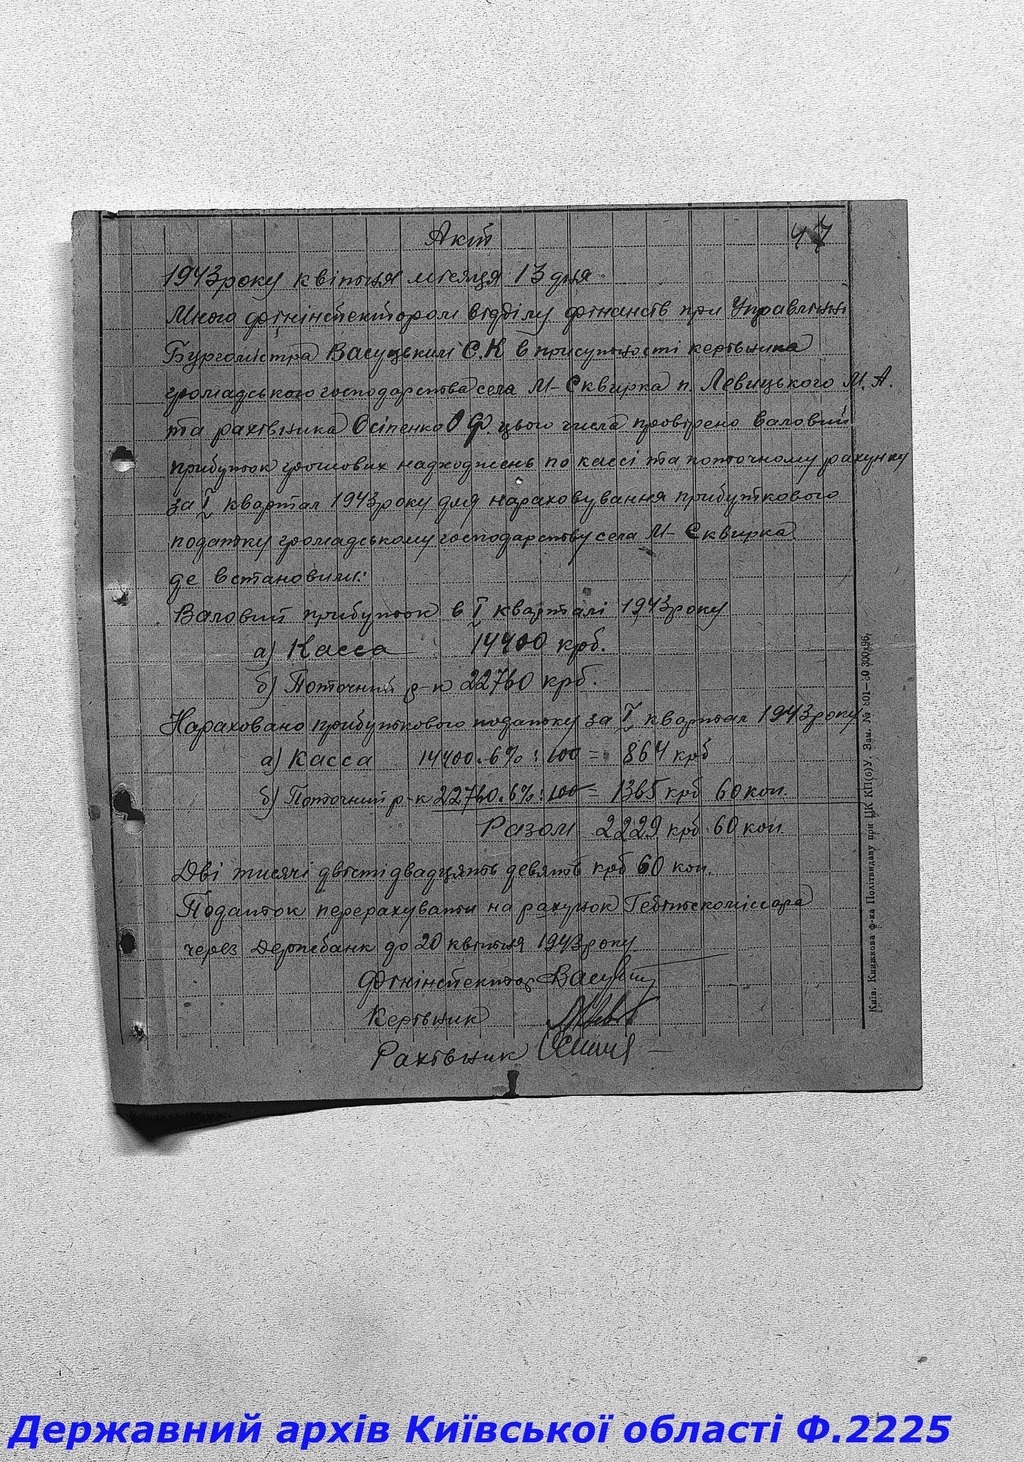 Акт
47
1943 року квітця місяця 13 дня
Мною фінінспектором відділу фінансів при Управлінні
Бургомістра Васуцьким С.К в присутності керівника
громадського господарства села М-Сквирка п. Левицького М. А.
та рахівника Осіпенко О Ф. цього числа провірено валовий
прибуток грошових надходжень по кассі та поточному рахунку
за I квартал 1943 року для нараховування прибуткового
податку громадському господарству села М-Сквирка
де встановили:
Валовий прибуток в I кварталі 1943 року
а) Касса 14400 крб.
б) Поточний р-к 22760 крб.
Нараховано прибуткового податку за I квартал 1943 року
а) Касса 14400.6% : 100 = 864 крб
б) Поточний р-к 22760.6% : 100 = 1365 крб 60 коп.
Разом 2229 крб. 60 коп.
Дві тисячі двісті двадцять девять крб 60 коп.
Податок перерахувати на рахунок Гебітскоміссара
через Держбанк до 20 квітня 1943 року
Фінінспектор
Керівник
Рахівник
Київ. Книжкова ф-ка Політвидаву при ЦК КП(б)У. Зам. №
Державний архів Київської області Ф.2225